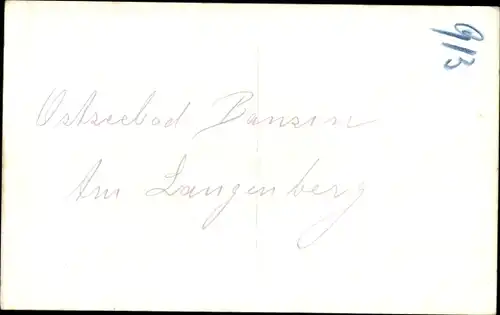 Ostseebad Bansin
Am Langenberg